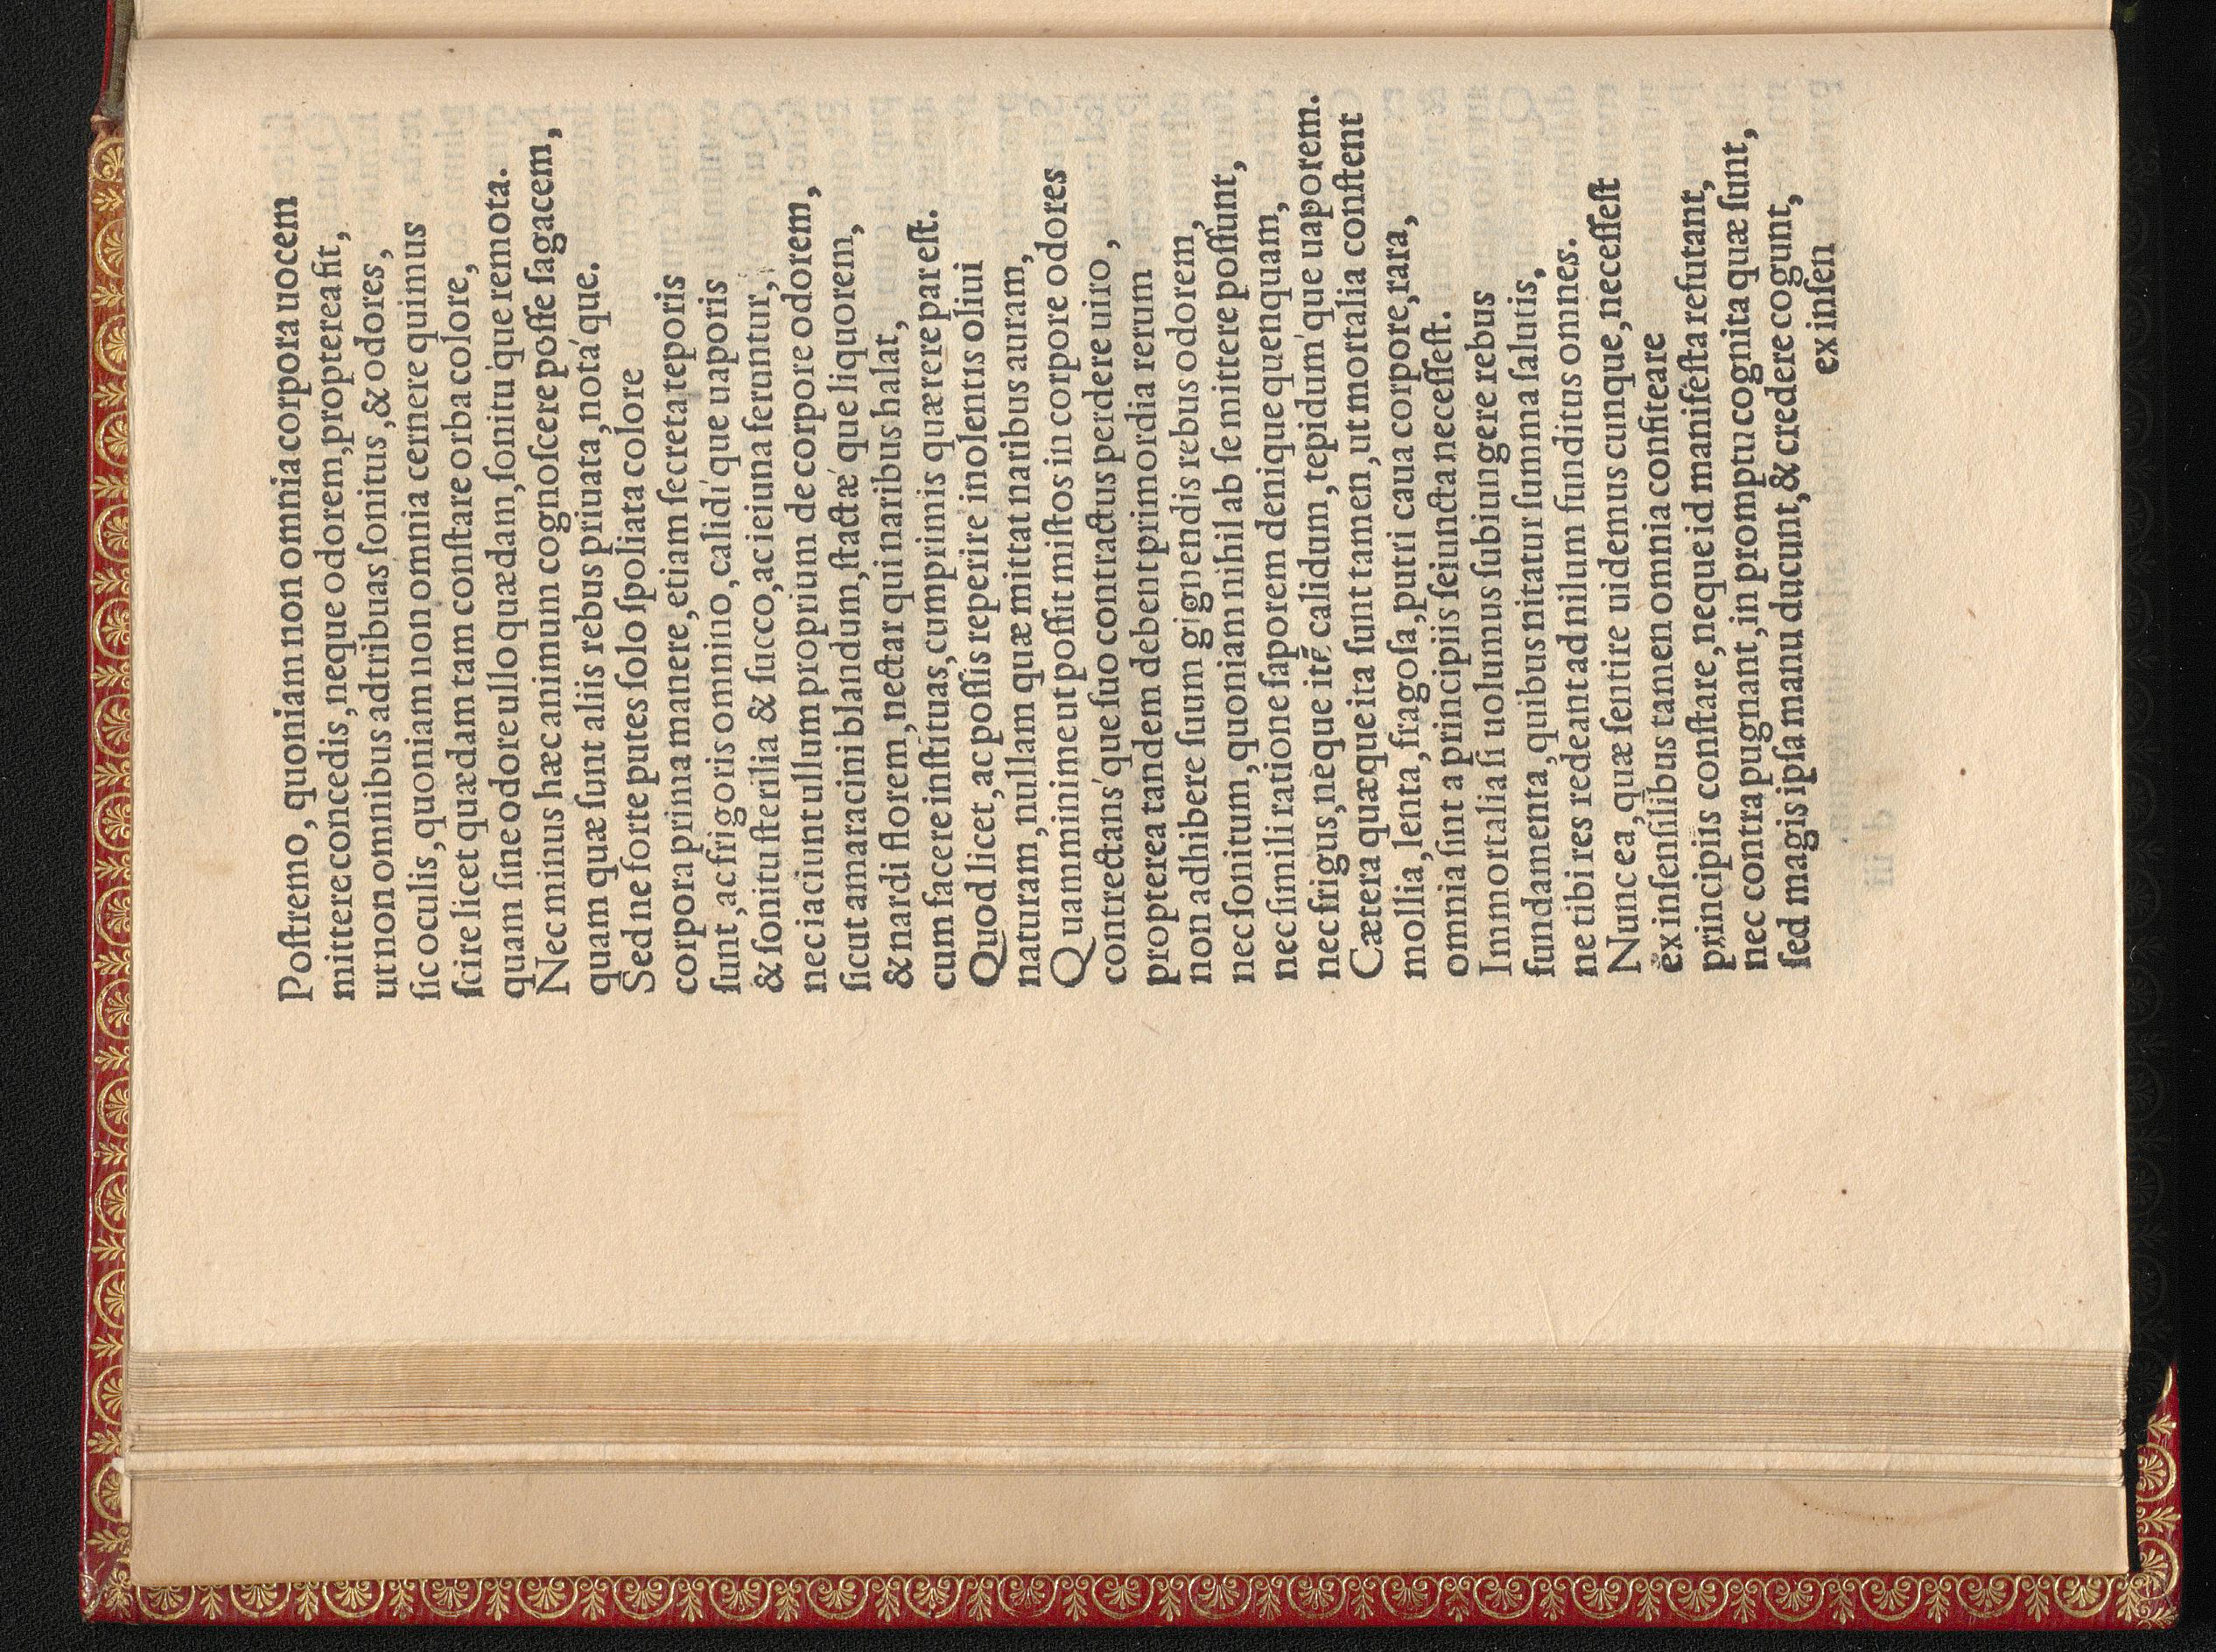 Poſtremo, quoniam non omnia corpora uocem
mittere concedis, neque odorem, propterea fit,
ut non omnibus adtribuas ſonitus, & odores,
ſic oculis, quoniam non omnia cernere quimus
ſcire licet quædam tam conſtare orba colore,
quam ſine odore ullo quædam, ſonitu'que remota.
Nec minus hæc animum cognoſcere poſſe ſagacem,
quam quæ ſunt aliis rebus priuata, nota'que.
Sed ne forte putes ſolo ſpoliata colore
corpora prima manere, etiam ſecreta teporis
ſunt, ac frigoris omnino, calidi'que uaporis
& ſonitu ſterilia & ſucco, ac ieiuna feruntur,
nec iaciunt ullum proprium de corpore odorem,
ſicut amaracini blandum, ſtactæ'que liquorem,
& nardi florem, nectar qui naribus halat,
cum facere inſtituas, cumprimis quærere par eſt.
Quod licet, ac poſſis reperire inolentis oliui
naturam, nullam quæ mittat naribus auram,
Quam minime ut poſſit miſtos in corpore odores
contrectans'que ſuo contractus perdere uiro,
propterea tandem debent primordia rerum
non adhibere ſuum gignendis rebus odorem,
nec ſonitum, quoniam nihil ab ſe mittere poſſunt,
nec ſimili ratione ſaporem denique quenquam,
nec frigus, neque itē calidum, tepidum'que uaporem.
Cætera quæque ita ſunt tamen, ut mortalia conſtent
mollia, lenta, fragoſa, putri caua corpore, rara,
omnia ſint a principiis ſeiuncta neceſſeſt.
Immortalia ſi uolumus ſubiungere rebus
fundamenta, quibus nitatur ſumma ſalutis,
ne tibi res redeant ad nilum funditus omnes.
Nunc ea, quæ ſentire uidemus cunque, neceſſeſt
ex inſenſilibus tamen omnia confiteare
principiis conſtare, neque id manifeſta refutant,
nec contra pugnant, in promptu cognita quæ ſunt,
ſed magis ipſa manu ducunt, & credere cogunt,
ex inſen